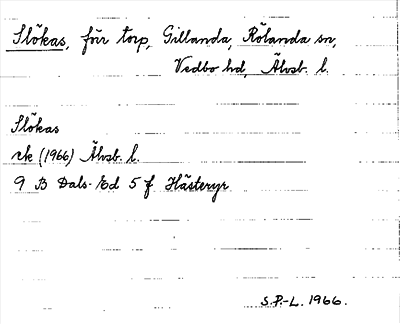 Slökas, förr torp, Gillanda, Rölanda sn,
Vedbo hd, Älvsb. l.
Slökas
ek (1966) Älvsb. l.
9 B Dals-Ed 5 f Hästeryr
S.P.-L. 1966.